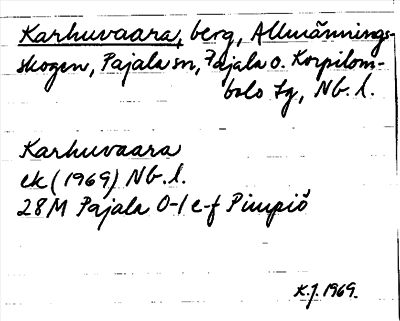 Karhuvaara, berg, Allmännings-
skogen, Pajala sn, Pajala o. Korpilom-
bolo tg, Nb. l.
Karhuvaara
ek (1969) Nb. l.
28M Pajala 0-1 e-f Pimpiö
K.J. 1969.